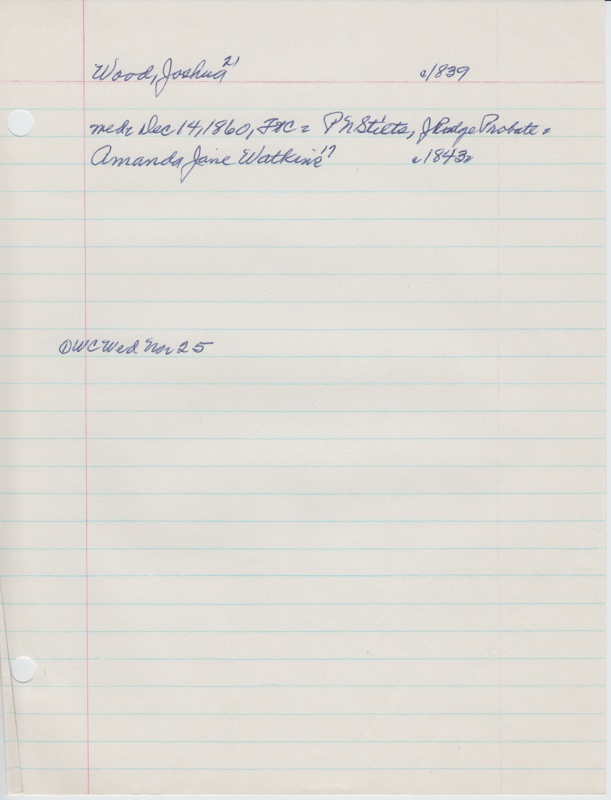 Wood, Joshua 21 c1839
md. Dec 14, 1860, FWC = P N Stilts, Judge Probate =
Amanda Jane Watkins 17 c1843
DWC Wed Nov 25